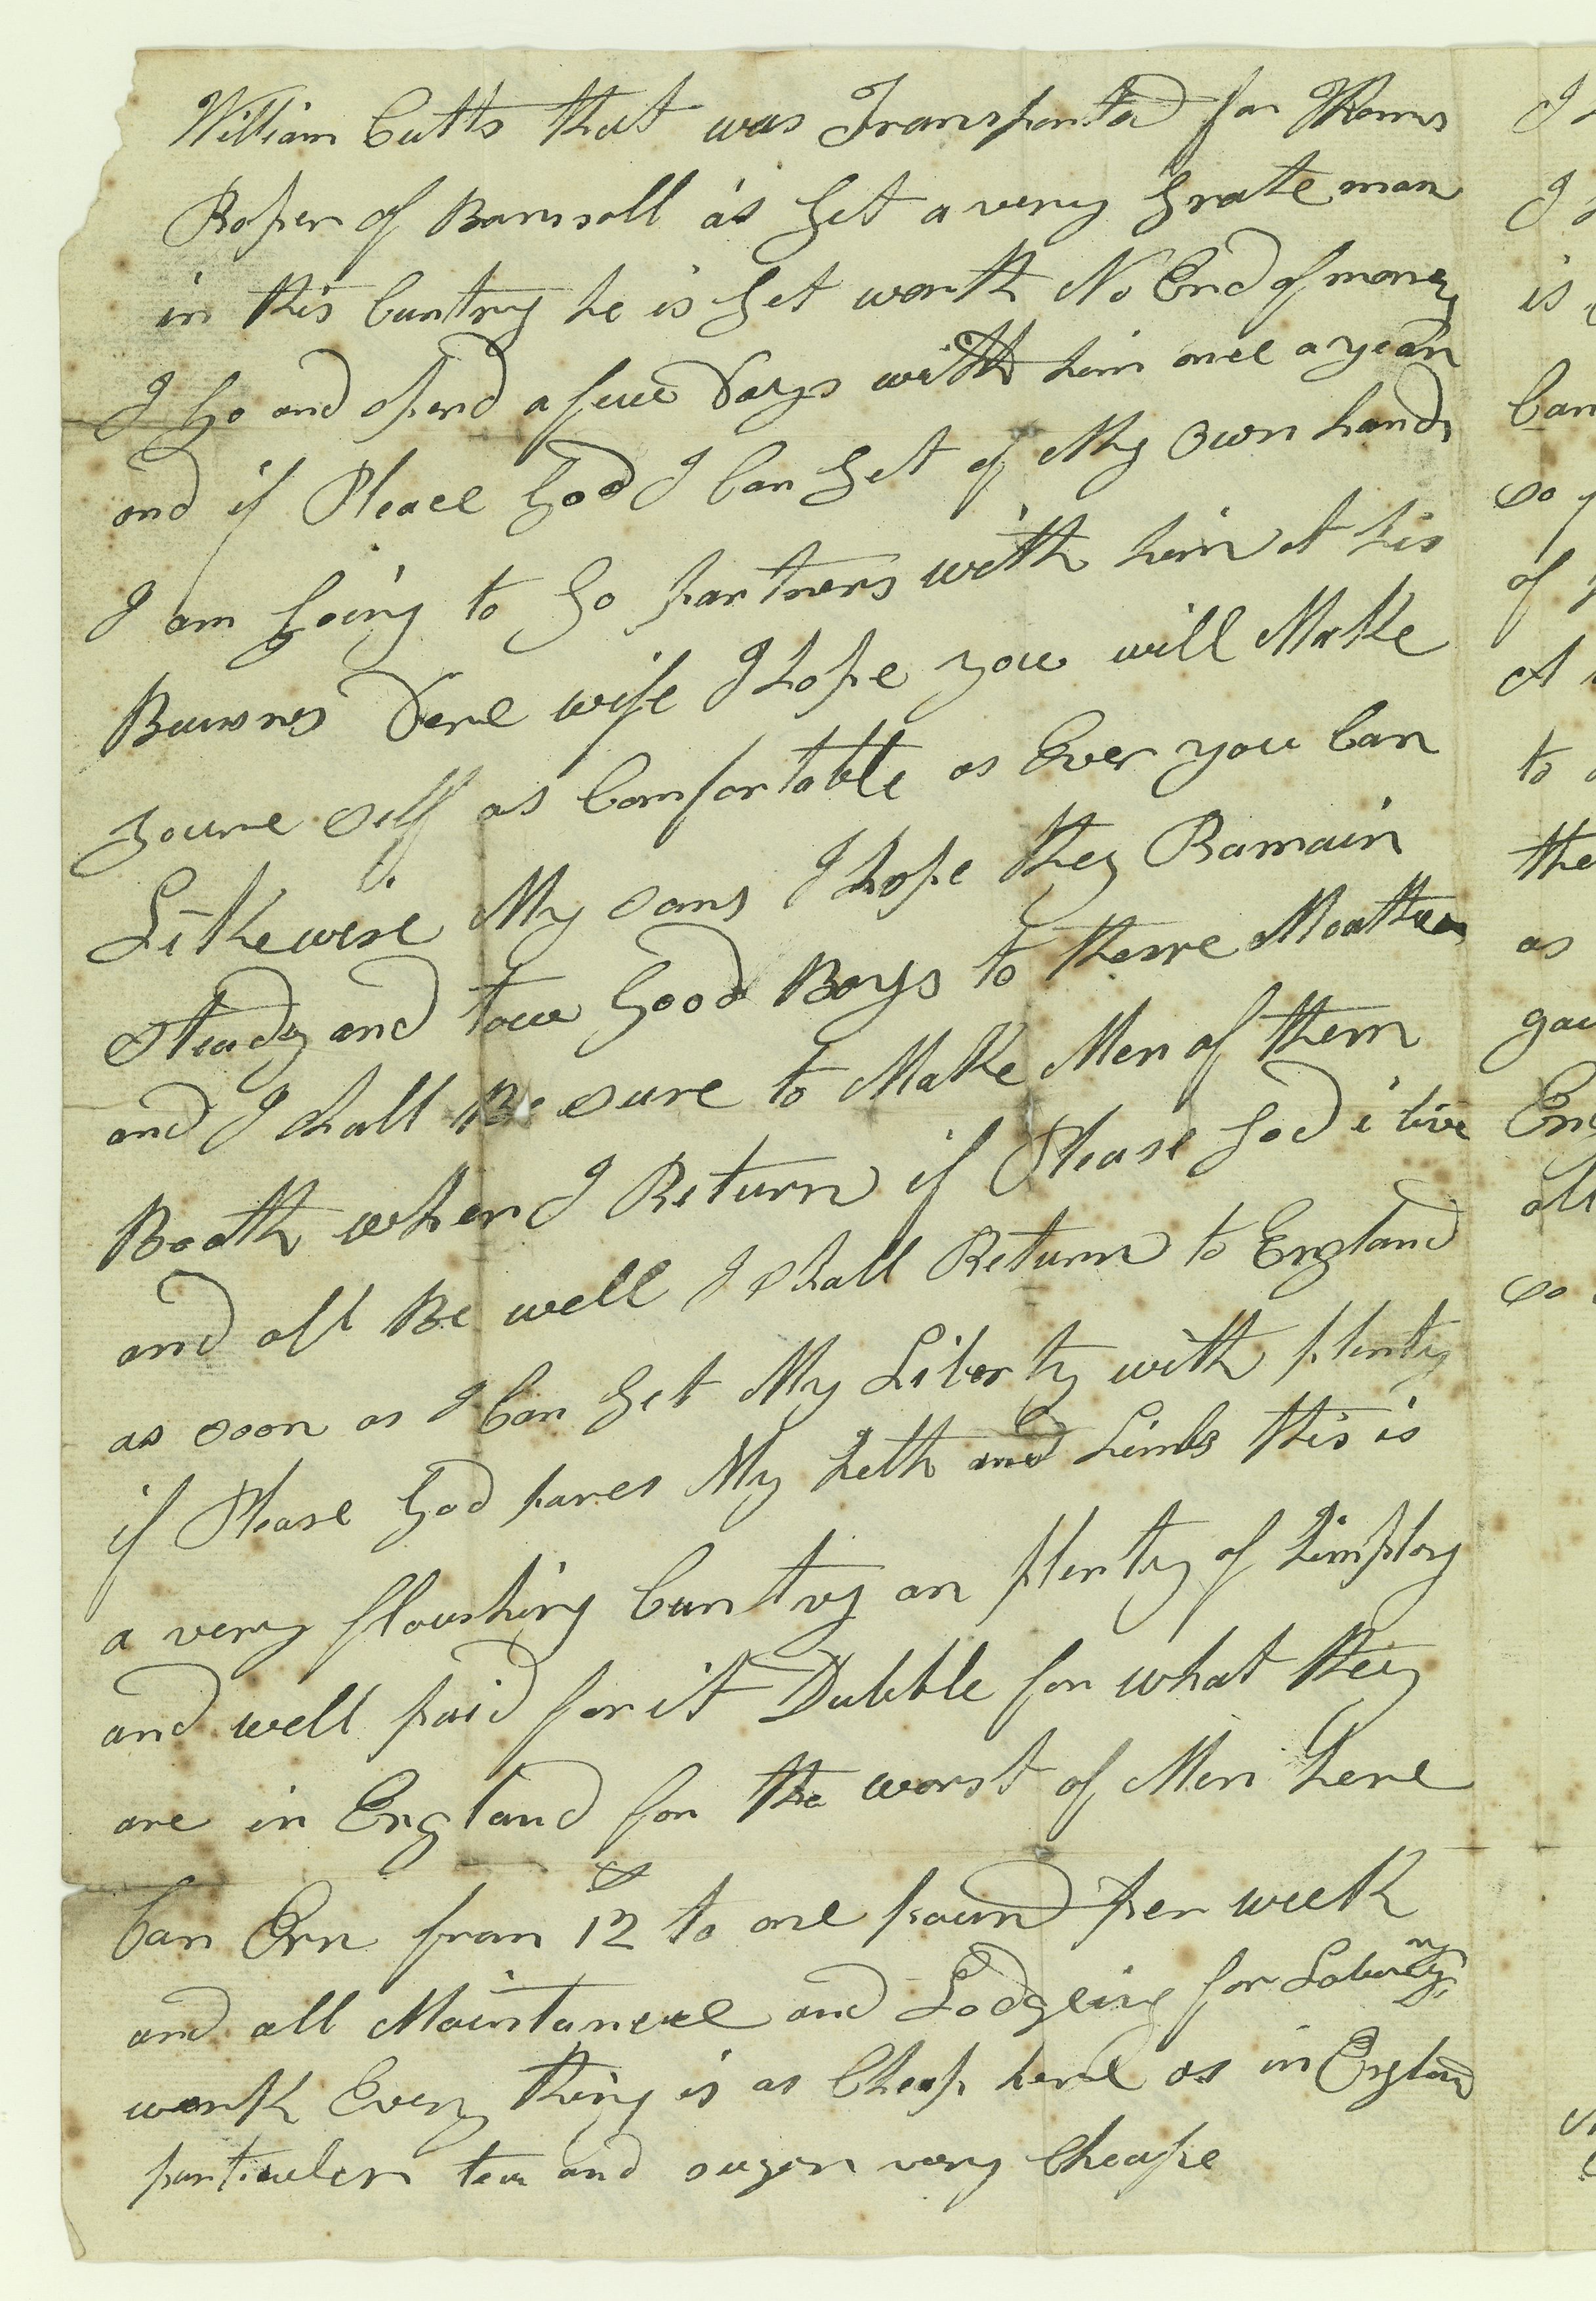 William Cutts that was Transported for Thoms
Roper of Barnsoll as Get a very Grate man
in this Cuntry he is Get worth No End of money
I Go and Spend a few Days with him once a year
and if Pleace God I Can Get of My Own hands
I am Going to Go partners with him at his
Buisnes Dere wife I hope you will Make
youre Self as Comfortable as Ever you Can
Likewise My Sons I hope they Ramain
Steady and tow Good Boys to theire Moather
and I Shall Be Sure to Make Men of them
Boath when I Return if Please God i live
and all Be well I Shall Return to England
as Soon as I Can Get My Liberty with plenty
if Please God pares My helth and Limbs this is
a very floushing Cuntry an plenty of himploy
and well paid for it Dubble for what they
are in England for the worst of Men here
Can Ern from 12 s to one pound per week
and all Maintanence and Lodgeing for Labering
work Every thing is as Cheap here as in England
particuler tea and suger very Cheape
I
I
is
Can
So
of
A
to
the
as
gav
En
all
So